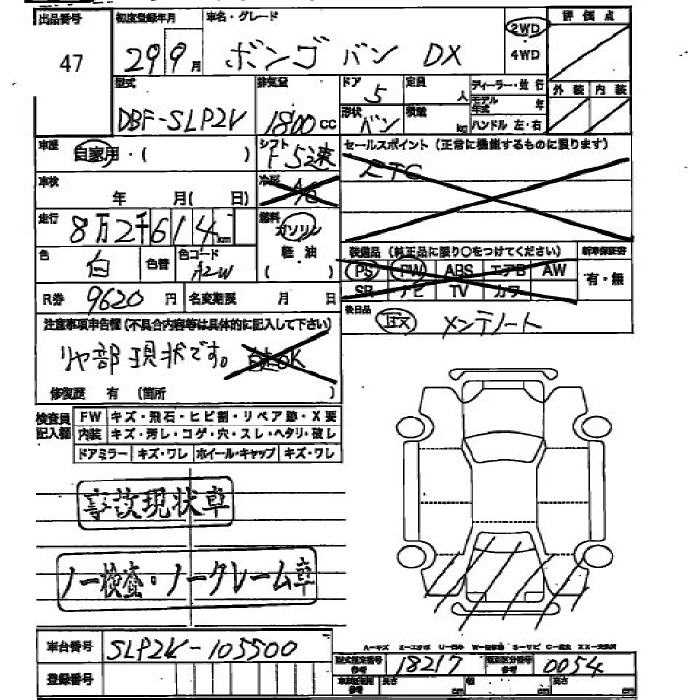 出品番号 初度登録年月 車名・グレード 2WD 評価点
47 29 9月 ボンゴバン DX ・4WD
型式 排気量 ドア 定員 ディーラー・並行 外装 内装
DBF-SLP2V 1800cc 5 人 モデル年式 年
形状 バン 積載 kg ハンドル 左・右
車歴 自家用・( ) シフト F5速 セールスポイント(正常に機能するものに限ります)
車検 年 月(日) 冷房 A/C ETC
走行 8万2千614km 燃料 ガソリン 軽油
装備品(純正品に限り○をつけてください) 新車保証書
色 白 色替 色コード A2W PS PW ABS エアB AW 有・無
SR ナビ TV カワ
R券 9620円 名変期限 月 日 後日品 取 メンテノート
注意事項申告欄(不具合内容等は具体的に記入して下さい)
リヤ部現状です。 自走OK
修復歴 有(箇所
検査員記入欄 FW キズ・飛石・ヒビ割・リペア跡・X要
内装 キズ・汚レ・コゲ・穴・スレ・ヘタリ・破レ
ドアミラー キズ・ワレ ホイール・キャップ キズ・ワレ
事故現状車
ノー検査・ノークレーム車
車台番号 SLP2V-105500
登録番号
型式指定番号 参考 18217 類別区分番号 参考 0054
長さ cm 幅 cm 高さ cm